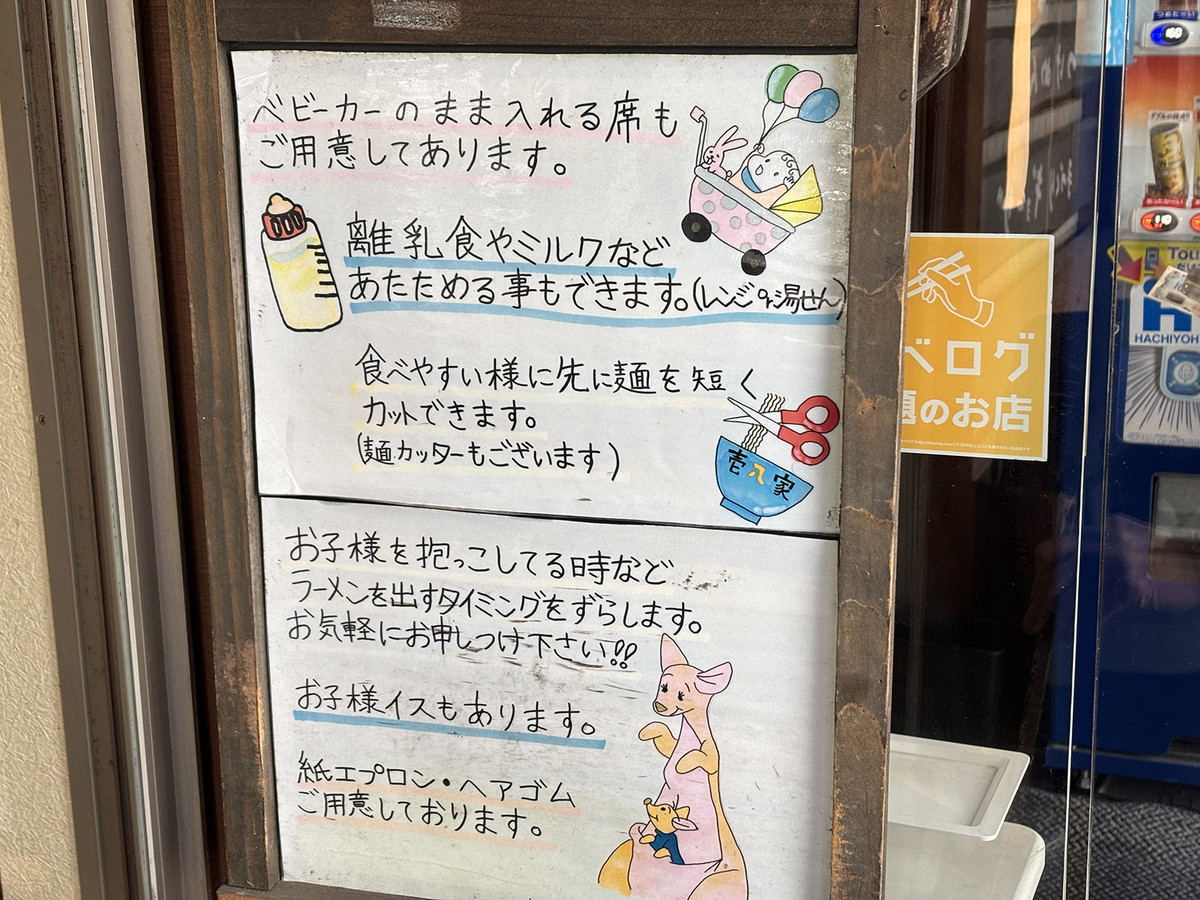 ベビーカーのまま入れる席も
ご用意してあります。
離乳食やミルクなど
あたためる事もできます。(レンジor湯せん)
食べやすい様に先に麺を短く
カットできます。
(麺カッターもございます)
壱八家
お子様を抱っこしてる時など
ラーメンを出すタイミングをずらします。
お気軽にお申しつけ下さい!!
お子様イスもあります。
紙エプロン・ヘアゴム
ご用意しております。
ベログ
のお店
HACHIYOH